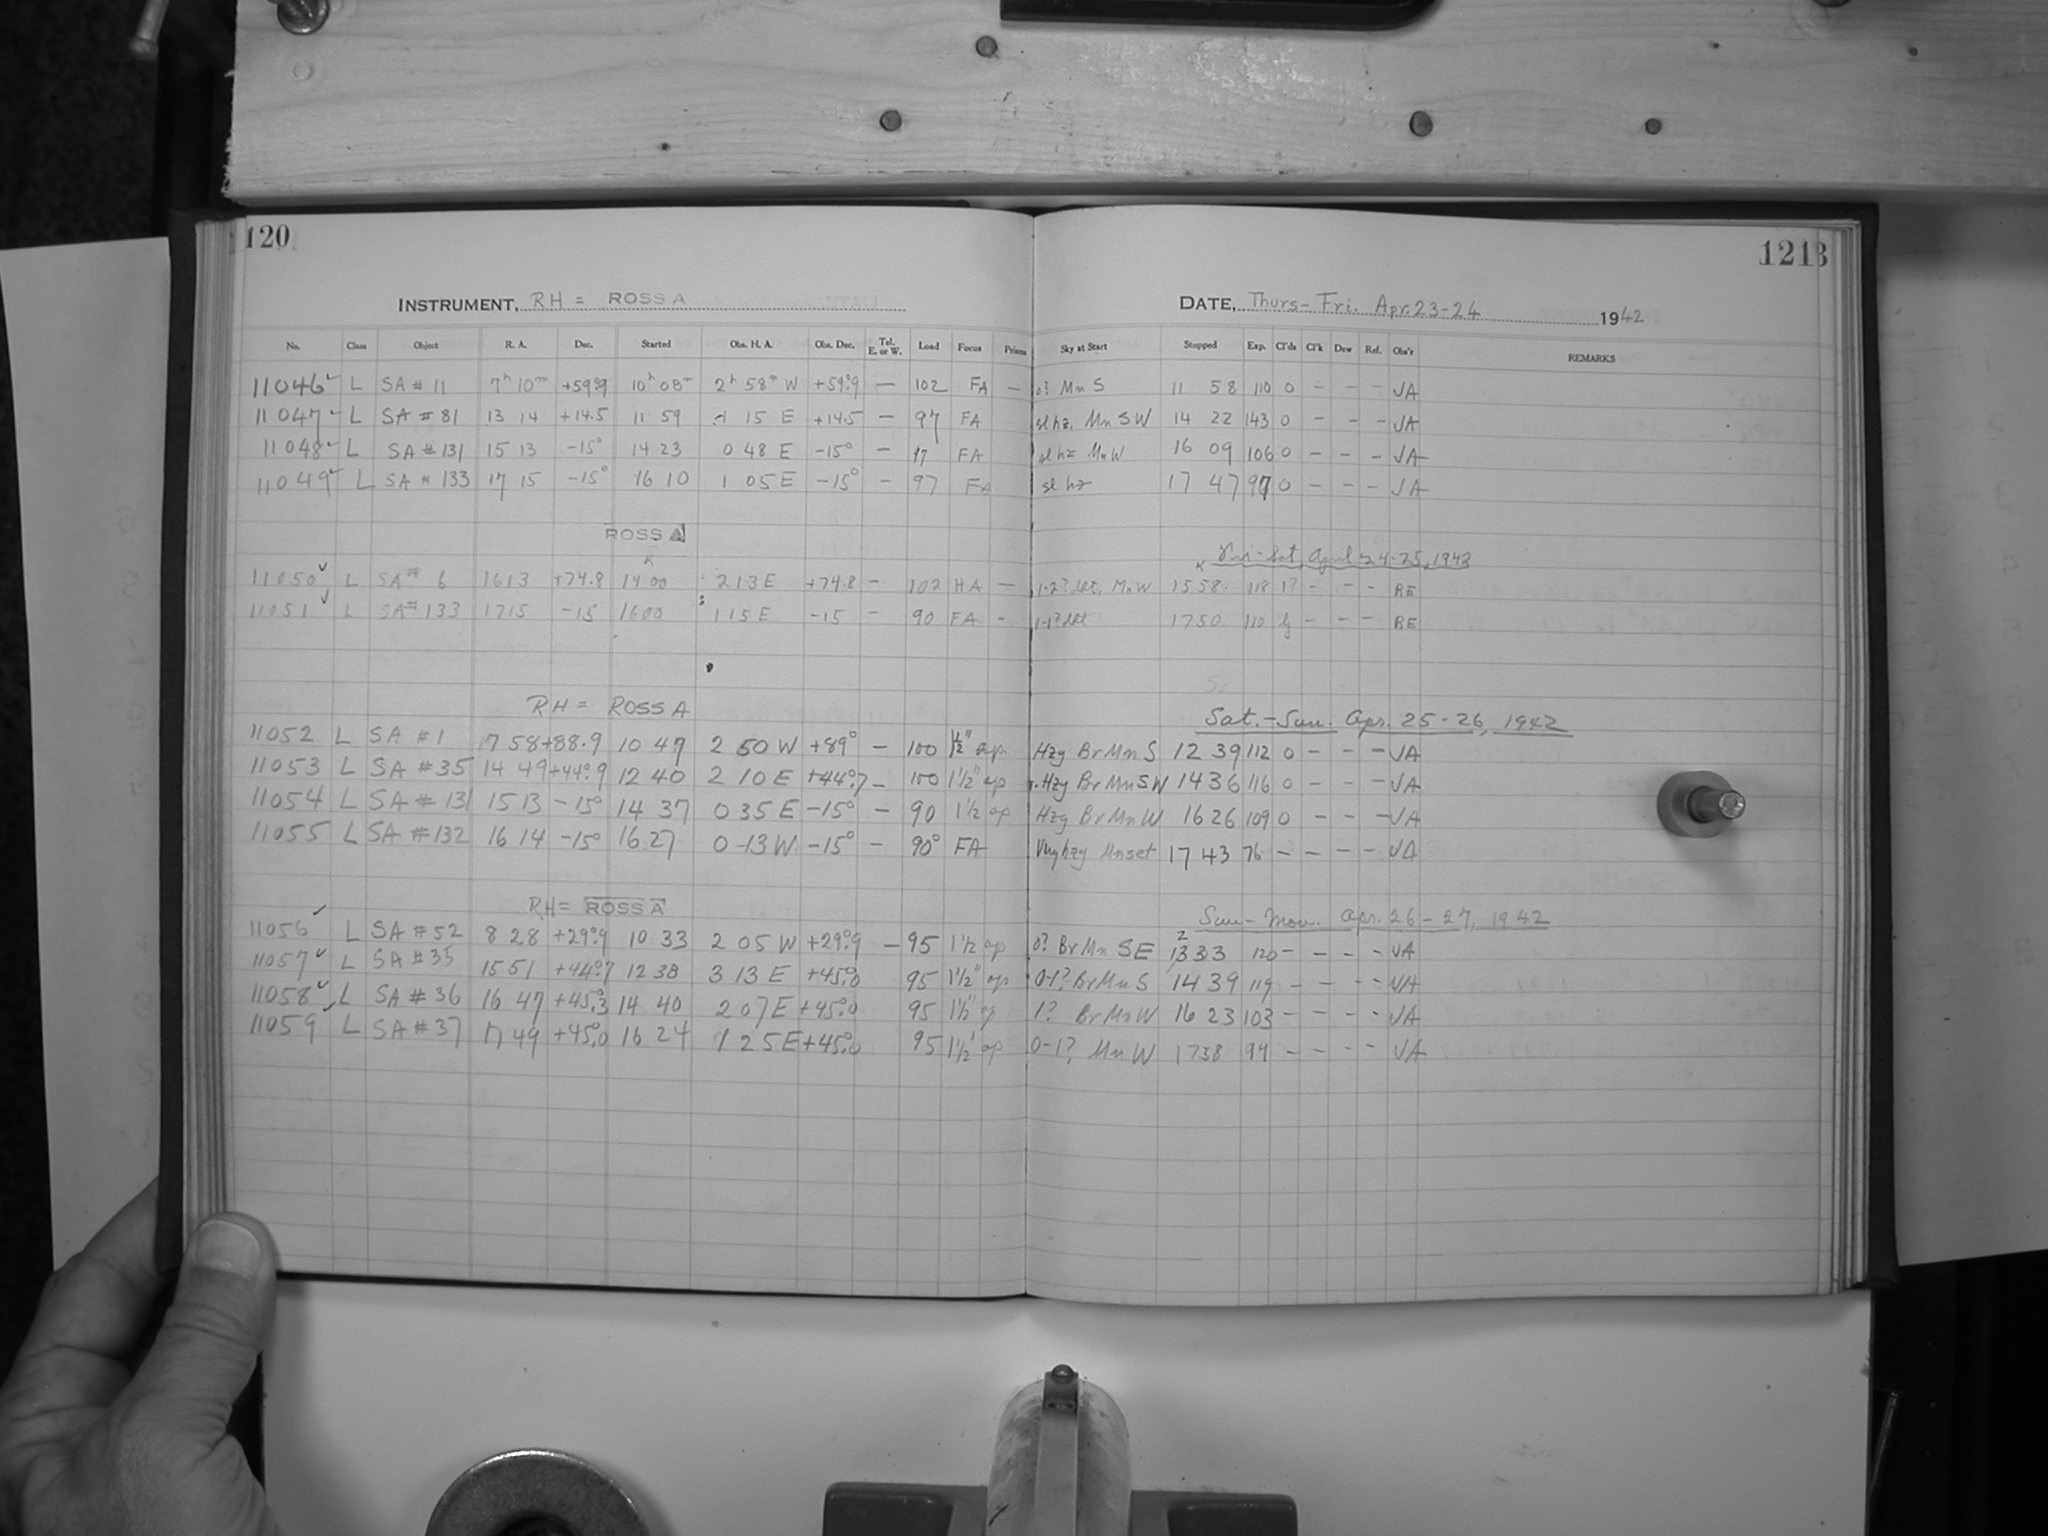 120
1213
INSTRUMENT, RH = ROSS A
DATE, Thurs-Fri. Apr. 23-24 1942
No. Class Object R. A. Dec. Started Obs. H. A. Obs. Dec. Tel. E. or W. Load Focus Prism Sky at Start Stopped Exp. Cl'ds Cl'k Dew Rel. Obs'r REMARKS
11046 L SA # 11 7h 10m +59°.9 10h 08m 2h 58m W +59°.9 — 102 FA — 0? Mn S 11 58 110 0 - - - JA
11047 L SA # 81 13 14 +14.5 11 59 1 15 E +14.5 — 97 FA sl hz. Mn SW 14 22 143 0 - - - JA
11048 L SA # 131 15 13 -15° 14 23 0 48 E -15° — 97 FA sl hz Mn W 16 09 106 0 - - - JA
11049 L SA # 133 17 15 -15° 16 10 1 05 E -15° - 97 FA sl hz 17 47 97 0 - - - JA
ROSS A
Fri-Sat, April 24-25, 1942
11050 L SA# 6 1613 +74.8 1400 213 E +74.8 - 102 HA — 1-2? Mn W 1558 118 1? - - - RE
11051 L SA# 133 1715 -15 1600 115 E -15 - 90 FA - 1-1? 1750 110 - - - RE
RH = ROSS A
Sat.-Sun. Apr. 25-26, 1942
11052 L SA #1 17 58 +88.9 10 47 2 50 W +89° — 100 1½" ap Hzy Br Mn S 12 39 112 0 - - - JA
11053 L SA #35 14 49 +44°.9 12 40 2 10 E +44°.7 - 100 1½" ap Hzy Br Mn SW 14 36 116 0 - - - JA
11054 L SA # 131 15 13 -15° 14 37 0 35 E -15° - 90 1½ ap Hzy Br Mn W 16 26 109 0 - - - JA
11055 L SA #132 16 14 -15° 16 27 0 13 W -15° - 90° FA Vry hzy Mn set 17 43 76 - - - - JA
RH = ROSS A
Sun-Mon. Apr. 26-27, 1942
11056 L SA # 52 8 28 +29°.9 10 33 2 05 W +29°.9 — 95 1½ ap 0? Br Mn SE 12 33 120 - - - - JA
11057 L SA # 35 15 51 +44°.7 12 38 3 13 E +45°.0 95 1½" ap 0-1? Br Mn S 14 39 119 - - - - JA
11058 L SA # 36 16 47 +45°.3 14 40 2 07 E +45°.0 95 1½" ap 1? Br Mn W 16 23 103 - - - - JA
11059 L SA # 37 17 49 +45°.0 16 24 1 25 E +45°.0 95 1½" ap 0-1? Mn W 1758 94 - - - - JA